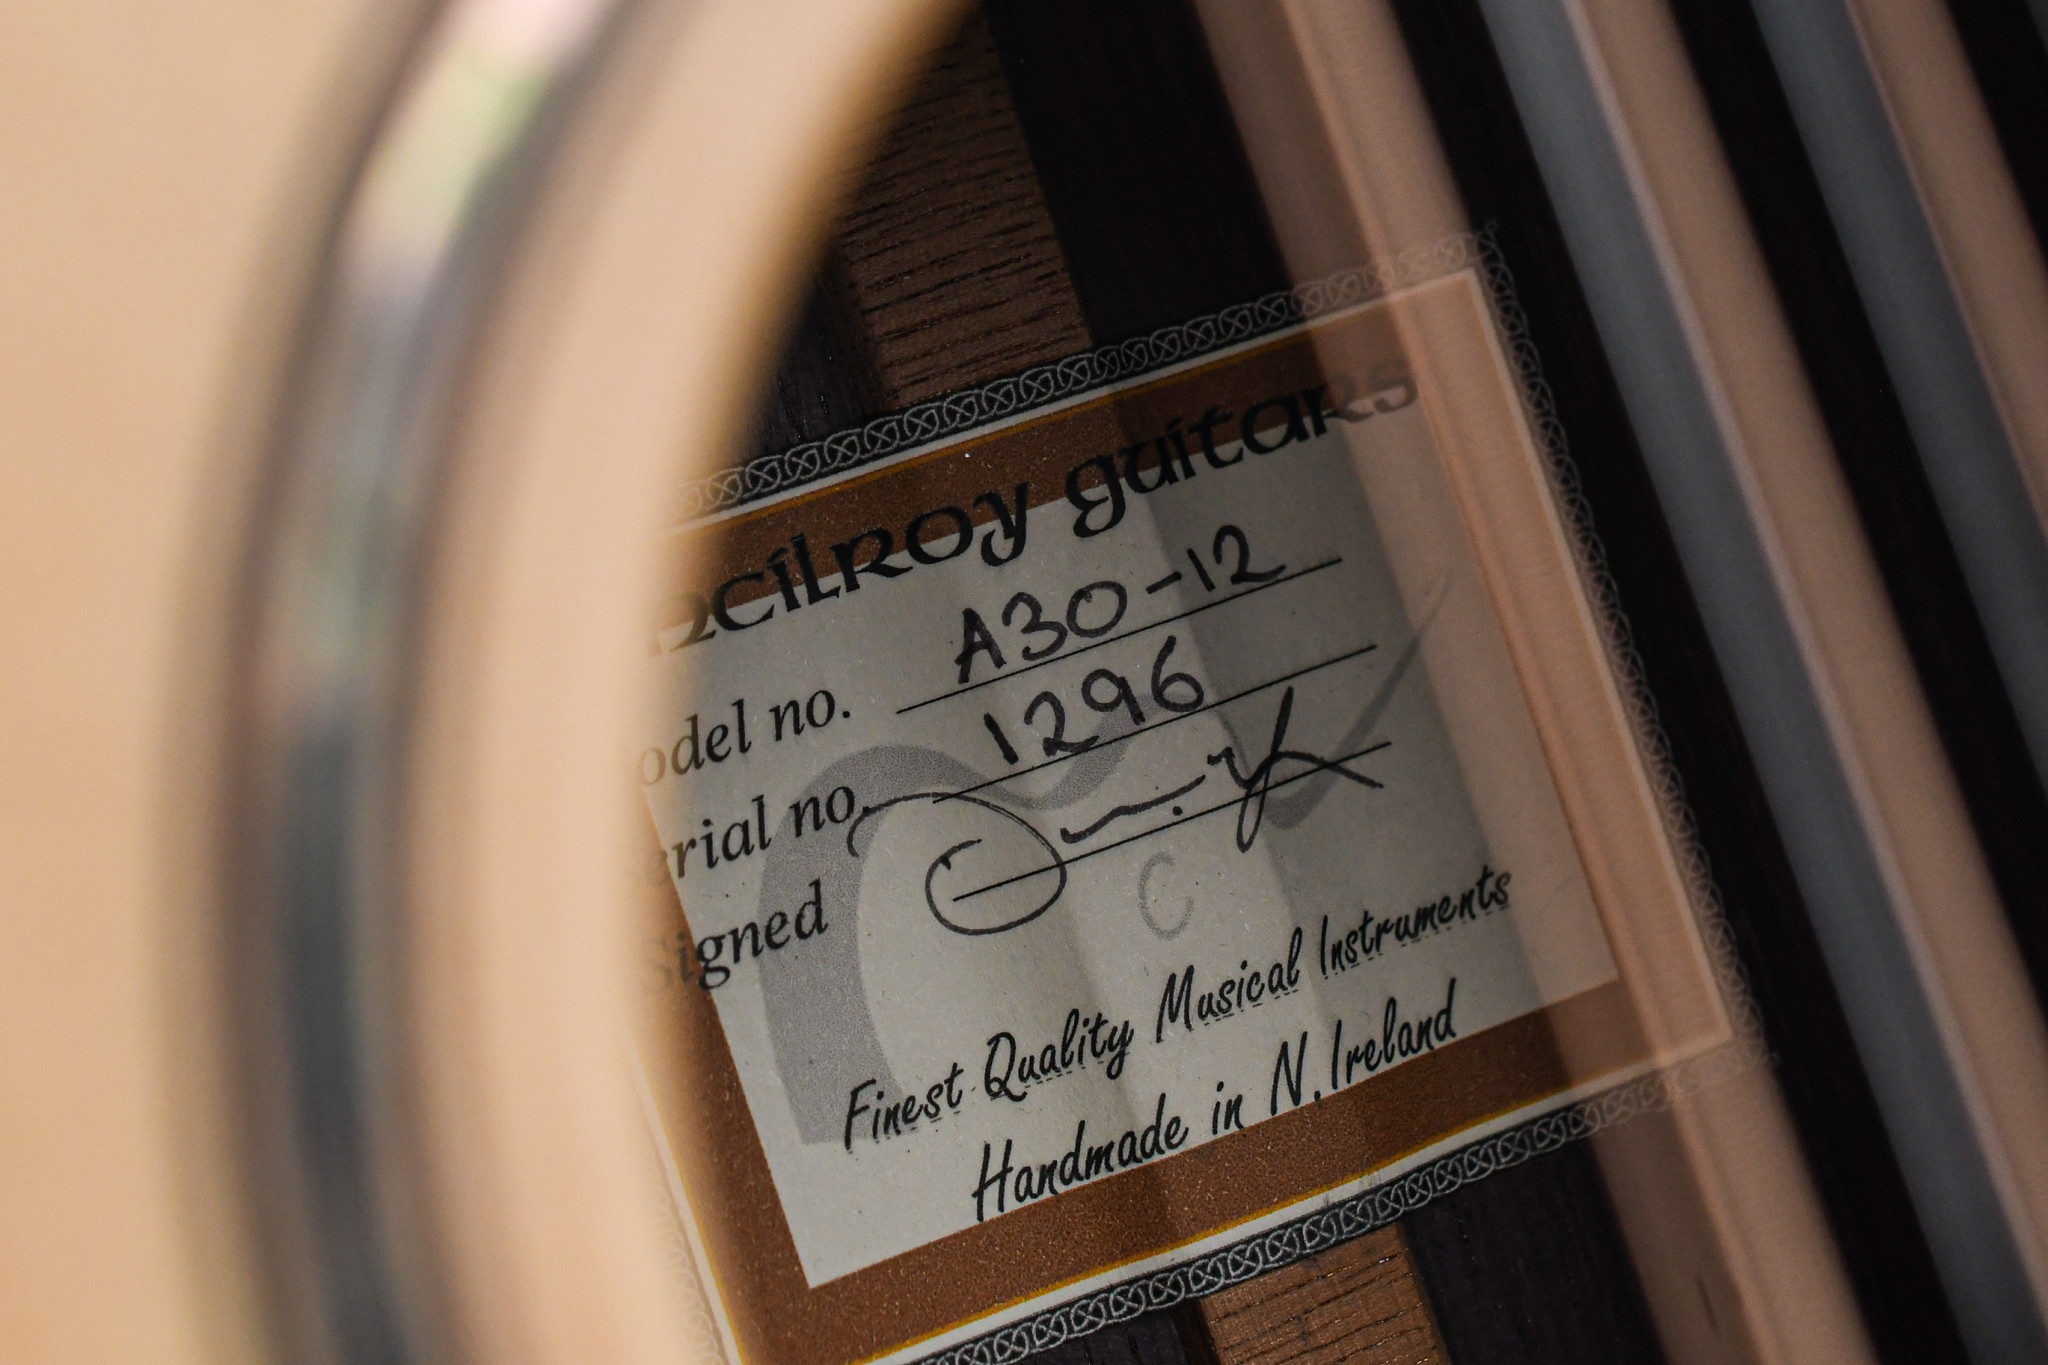 mcilroy guitars
odel no. A30-12
erial no. 1296
signed
C
Finest Quality Musical Instruments
Handmade in N. Ireland